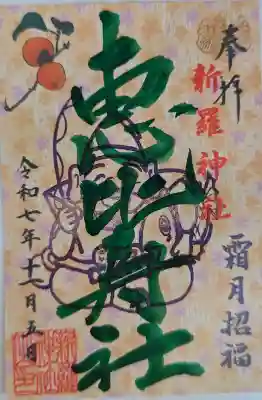 奉拝
新羅神社
霜月招福
恵比寿社
令和七年十一月五日